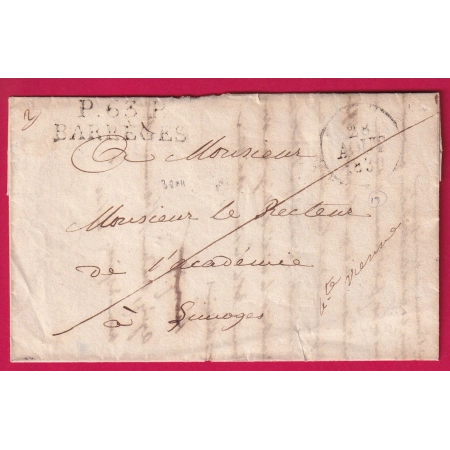 P. 63 P.
BARRÈGES
28
1830
A Monsieur
Monsieur le Recteur
de l'académie
à Limoges
hte vienne